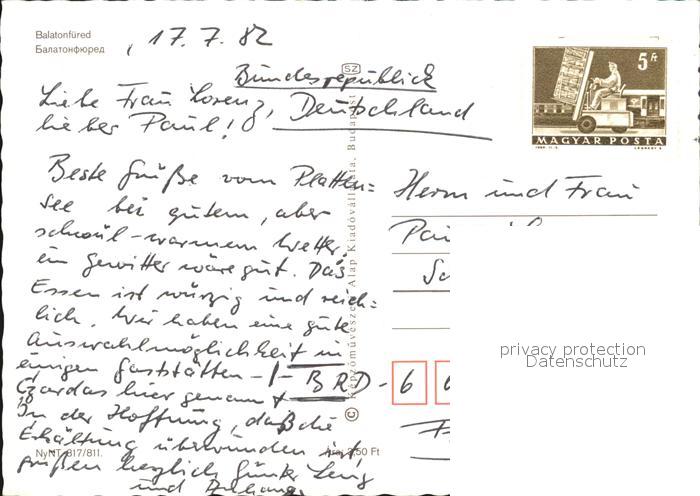 Balatonfüred
Балатонфюред
17. 7. 82
SZ
Bundesrepublick
Deutschland
Liebe Frau Lorenz,
lieber Paul!
5 Ft
MAGYAR POSTA
Beste Grüße vom Platten=
see bei gutem, aber
schwül-warmem Wetter,
ein Gewitter wäre gut. Das
Essen ist würzig und reich=
lich. Wir haben eine gute
Auswahlmöglichkeit in
einigen Gaststätten -
Czardas hier genannt
In der Hoffnung, daß die
Erkältung überwunden ist,
grüßen herzlich
und
Herrn und Frau
BRD - 6
© Képzőművészeti Alap Kiadóvállalata, Budapest
NyNT 817/811.
Ára: 2,50 Ft
privacy protection
Datenschutz